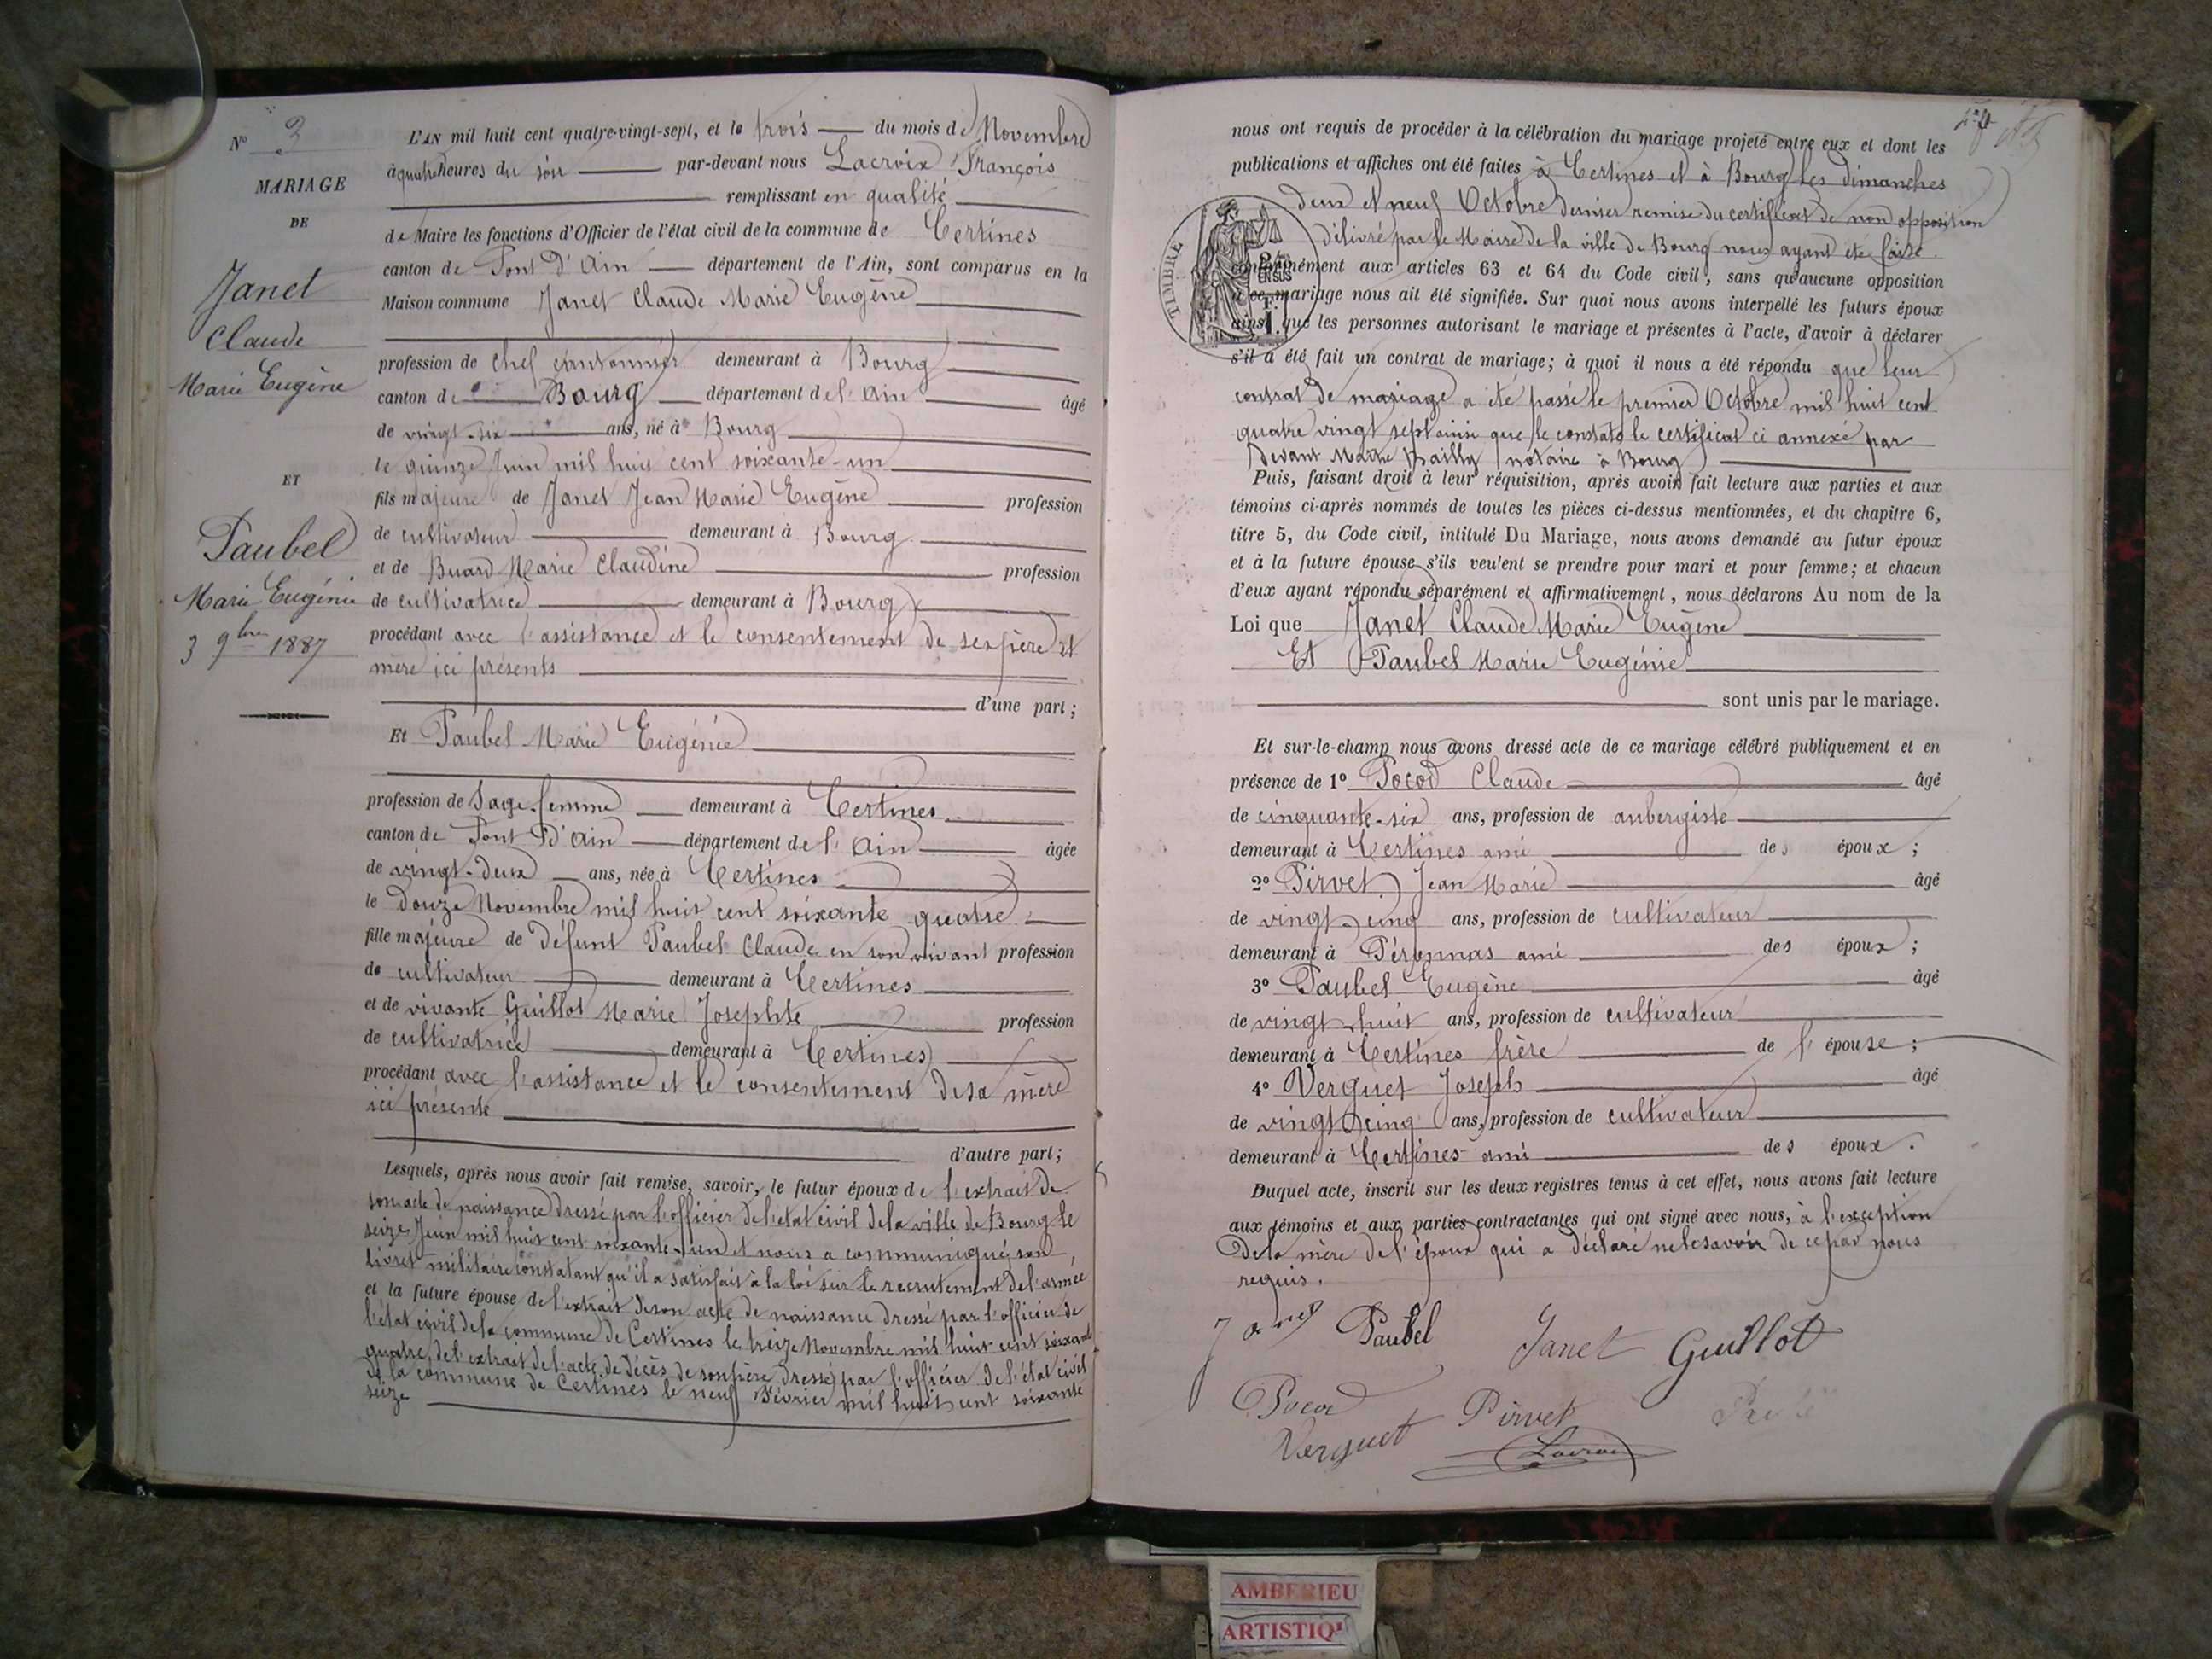 N° 3
MARIAGE
DE
Janet
Claude
Marie Eugène
ET
Paubel
Marie Eugénie
3 9bre 1887
L'AN mil huit cent quatre-vingt-sept, et le trois du mois de Novembre
à quatre heures du soir par-devant nous Lacroix François
remplissant en qualité
de Maire les fonctions d'Officier de l'état civil de la commune de Certines
canton de Pont d'Ain département de l'Ain, sont comparus en la
Maison commune Janet Claude Marie Eugène
profession de chef cantonnier demeurant à Bourg
canton de Bourg département de l'Ain âgé
de vingt-six ans, né à Bourg
le quinze Juin mil huit cent soixante-un
fils majeure de Janet Jean Marie Eugène profession
de cultivateur demeurant à Bourg
et de Buard Marie Claudine profession
de cultivatrice demeurant à Bourg
procédant avec l'assistance et le consentement de ses père et
mère ici présents
d'une part;
Et Paubel Marie Eugénie
profession de Sage-femme demeurant à Certines
canton de Pont D'Ain département de l'Ain âgée
de vingt-deux ans, née à Certines
le Douze Novembre mil huit cent soixante quatre
fille majeure de défunt Paubel Claude en son vivant profession
de cultivateur demeurant à Certines
et de vivante Guillot Marie Josephte profession
de cultivatrice demeurant à Certines
procédant avec l'assistance et le consentement de sa mère
ici présente
d'autre part;
Lesquels, après nous avoir fait remise, savoir, le futur époux de l'extrait de
son acte de naissance dressé par l'officier de l'état civil de la ville de Bourg le
seize Juin mil huit cent soixante-un et nous a communiqué son
livret militaire constatant qu'il a satisfait à la loi sur le recrutement de l'armée
et la future épouse de l'extrait de son acte de naissance dressé par l'officier de
l'état civil de la commune de Certines le treize Novembre mil huit cent soixante
quatre, de l'extrait de l'acte de décès de son père dressé par l'officier de l'état civil
de la commune de Certines le neuf Février mil huit cent soixante
seize
nous ont requis de procéder à la célébration du mariage projeté entre eux et dont les
publications et affiches ont été faites à Certines et à Bourg les dimanches
deux et neuf Octobre dernier remise du certificat de non opposition
délivré par le Maire de la ville de Bourg nous ayant été faite
TIMBRE
2/10
EN SUS
F.
1.
conformément aux articles 63 et 64 du Code civil, sans qu'aucune opposition
à ce mariage nous ait été signifiée. Sur quoi nous avons interpellé les futurs époux
ainsi que les personnes autorisant le mariage et présentes à l'acte, d'avoir à déclarer
s'il a été fait un contrat de mariage; à quoi il nous a été répondu que leur
contrat de mariage a été passé le premier Octobre mil huit cent
quatre vingt sept ainsi que le constate le certificat ci annexé par
devant Maitre Bailly notaire à Bourg
Puis, faisant droit à leur réquisition, après avoir fait lecture aux parties et aux
témoins ci-après nommés de toutes les pièces ci-dessus mentionnées, et du chapitre 6,
titre 5, du Code civil, intitulé Du Mariage, nous avons demandé au futur époux
et à la future épouse s'ils veulent se prendre pour mari et pour femme; et chacun
d'eux ayant répondu séparément et affirmativement, nous déclarons Au nom de la
Loi que Janet Claude Marie Eugène
Et Paubel Marie Eugénie
sont unis par le mariage.
Et sur-le-champ nous avons dressé acte de ce mariage célébré publiquement et en
présence de 1° Pocod Claude âgé
de cinquante-six ans, profession de aubergiste
demeurant à Certines ami des époux;
2° Pirvet Jean Marie âgé
de vingt cinq ans, profession de cultivateur
demeurant à Péronnas ami des époux;
3° Paubel Eugène âgé
de vingt huit ans, profession de cultivateur
demeurant à Certines frère de l'épouse;
4° Verguet Joseph âgé
de vingt cinq ans, profession de cultivateur
demeurant à Certines ami des époux.
Duquel acte, inscrit sur les deux registres tenus à cet effet, nous avons fait lecture
aux témoins et aux parties contractantes qui ont signé avec nous, à l'exception
De la mère de l'époux qui a déclaré ne le savoir de ce par nous
requis.
Janet Paubel Janet Guillot
Pocod Pirvet
Verguet Lacroix
AMBERIEU
ARTISTIQ